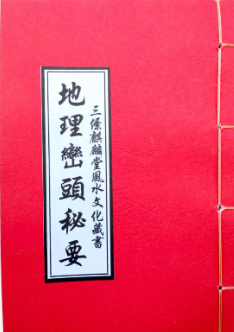 三僚麒麟堂風水文化藏書
地理巒頭秘要